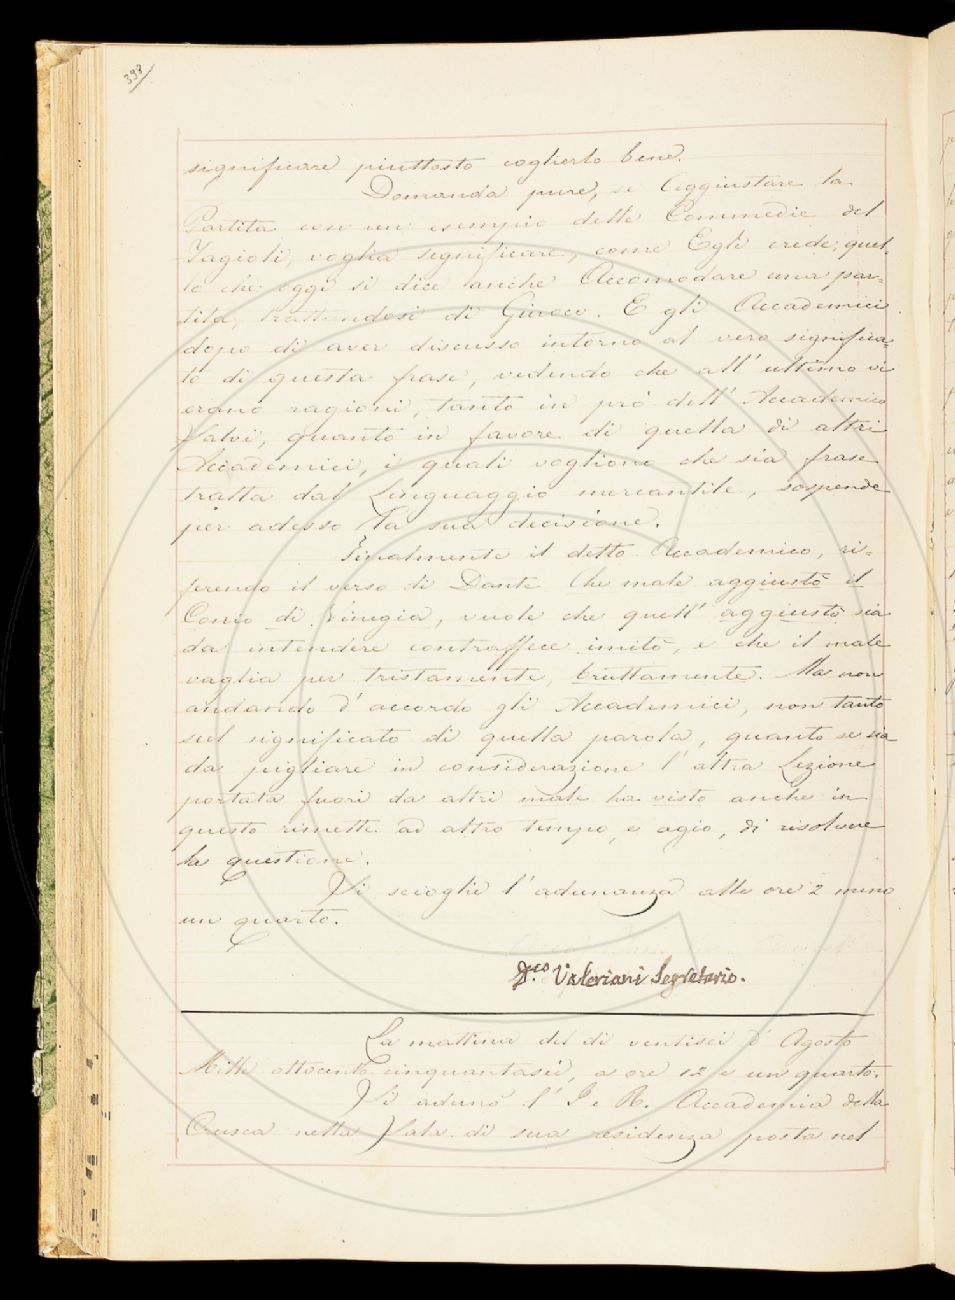 393
significare piuttosto coglierlo bene.
Domanda pure, se Aggiustare la
Partita con un esempio delle Commedie del
Fagioli, voglia significare, come Egli crede, quel-
lo che oggi si dice anche Accomodare una par-
tita, trattandosi di Giuoco. E gli Accademici
dopo di aver discusso intorno al vero significa-
to di questa frase, vedendo che all' ultimo vi
erano ragioni, tanto in prò dell' Accademico
Salvi, quanto in favore di quella di altri
Accademici, i quali vogliono che sia frase
tratta dal Linguaggio mercantile, sospende
per adesso la sua decisione.
Finalmente il detto Accademico, ri-
ferendo il verso di Dante Che male aggiustò il
Conio di Vinegia, vuole che quell' aggiustò sia
da intendere contraffece imitò, e che il male
vaglia per tristamente, bruttamente. Ma non
andando d' accordo gli Accademici, non tanto
sul significato di quella parola, quanto se sia
da pigliare in considerazione l' altra Lezione
portata fuori da altri male ha visto anche in
questo rimette ad altro tempo, e agio, di risolvere
la questione.
Si scioglie l' adunanza alle ore 2 meno
un quarto.
Valeriani Segretario.
La mattina del dì ventisei d' Agosto
Mille ottocento cinquantasei, a ore 12 e un quarto.
Si adunò l' I. e R. Accademia della
Crusca nella Sala di sua residenza posta nel